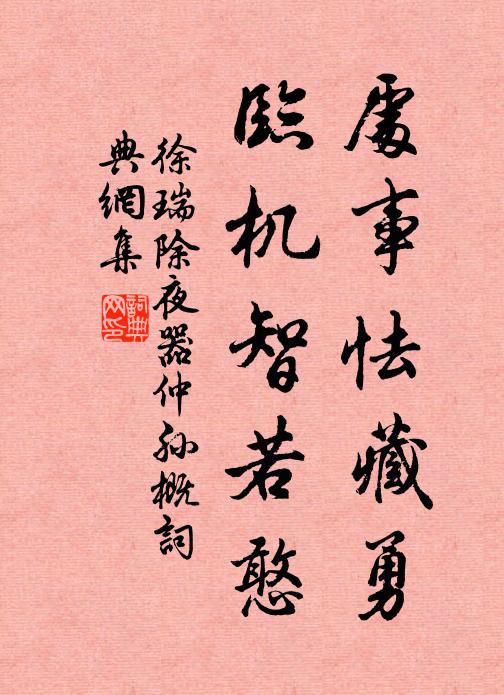 處事怯藏勇
臨机智若憨
徐瑞除夜器仲孙概詞
典網集
詞典网印